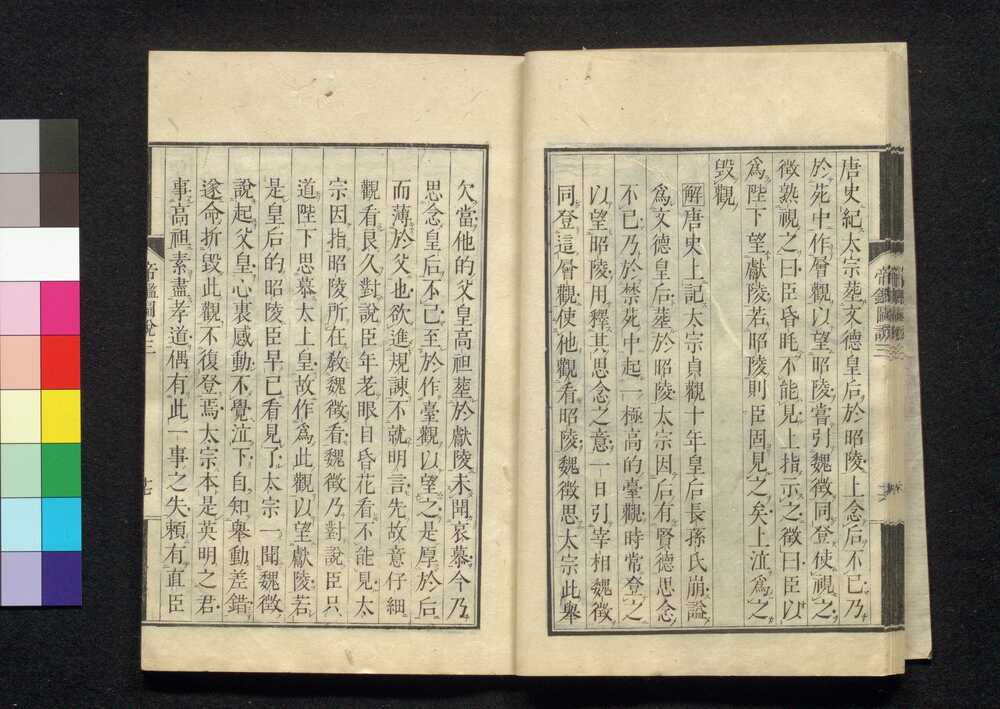 唐史紀太宗葬文德皇后於昭陵上念后不已乃
於苑中作層觀以望昭陵嘗引魏徵同登使視之
徵熟視之曰臣昏眊不能見上指示之徵曰臣以
爲陛下望獻陵若昭陵則臣固見之矣上泣爲之
毀觀
解唐史上記太宗貞觀十年皇后長孫氏崩謚
爲文德皇后葬於昭陵太宗因后有賢德思念
不已乃於禁苑中起一極高的臺觀時常登之
以望昭陵用釋其思念之意一日引宰相魏徵
同登這層觀使他觀看昭陵魏徵思太宗此舉
欠當他的父皇高祖葬於獻陵未聞哀慕今乃
思念皇后不已至於作臺觀以望之是厚於后
而薄於父也欲進規諫不就明言先故意仔細
觀看良久對說臣年老眼目昏花看不能見太
宗因指昭陵所在敎魏徵看魏徵乃對說臣只
道陛下思慕太上皇故作爲此觀以望獻陵若
是皇后的昭陵臣早已看見了太宗一聞魏徵
說起父皇心裏感動不覺泣下自知舉動差錯
遂命折毀此觀不復登焉太宗本是英明之君
事高祖素盡孝道偶有此一事之失賴有直臣
帝鑑圖說三